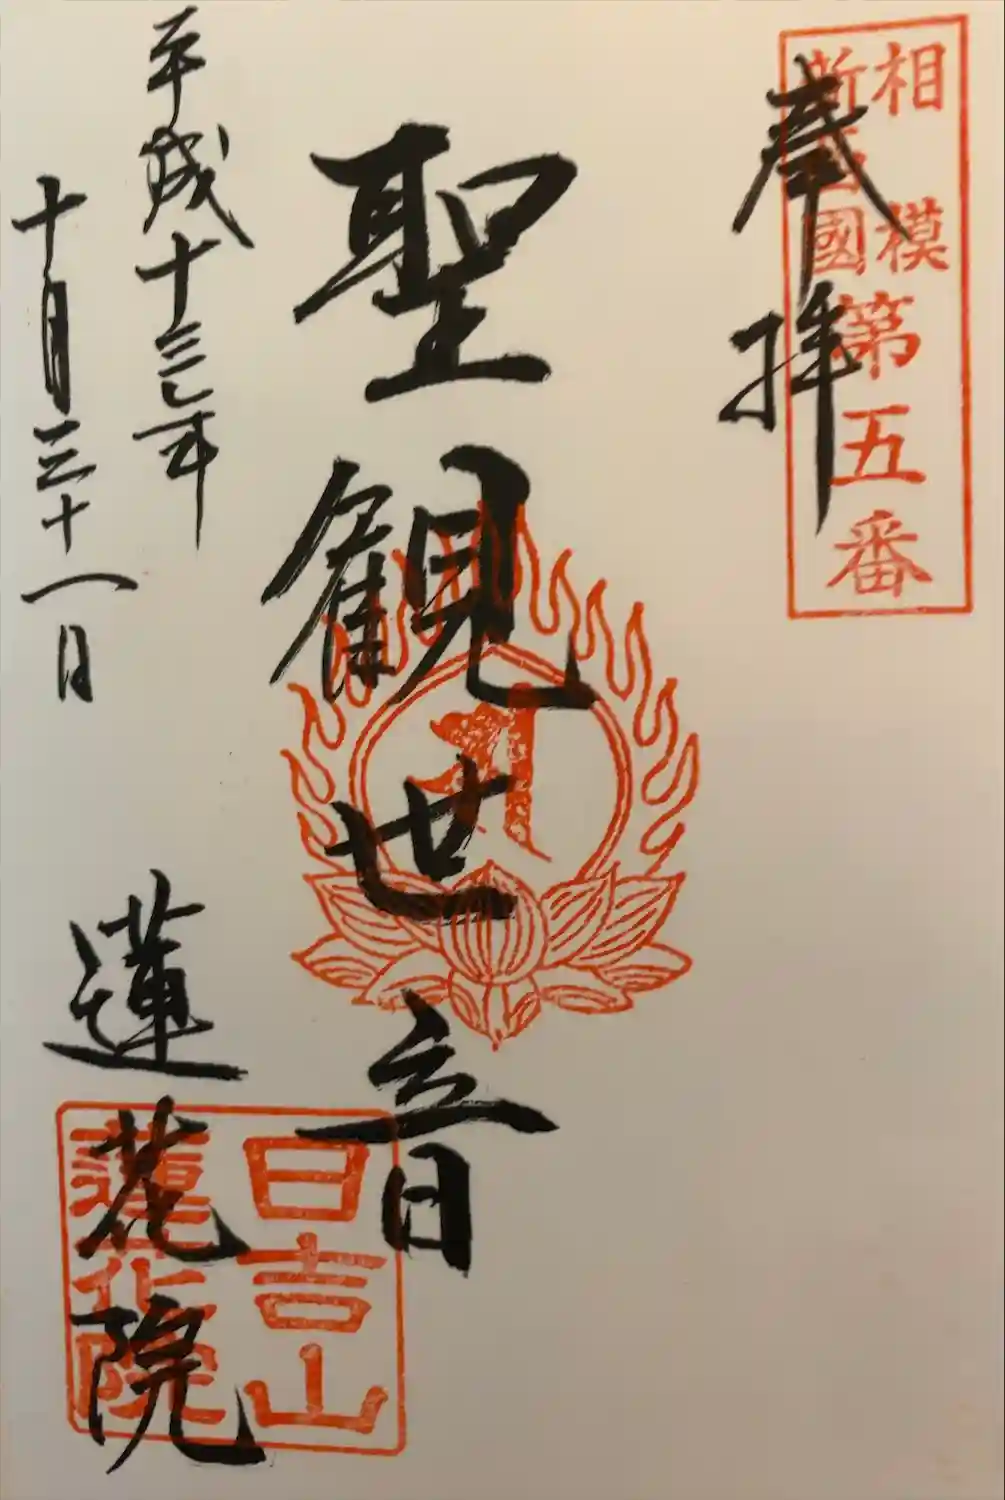 相模
新西國
第五番
奉拝
聖観世音
平成十三年
十月三十一日
蓮花院
日吉山
蓮花院